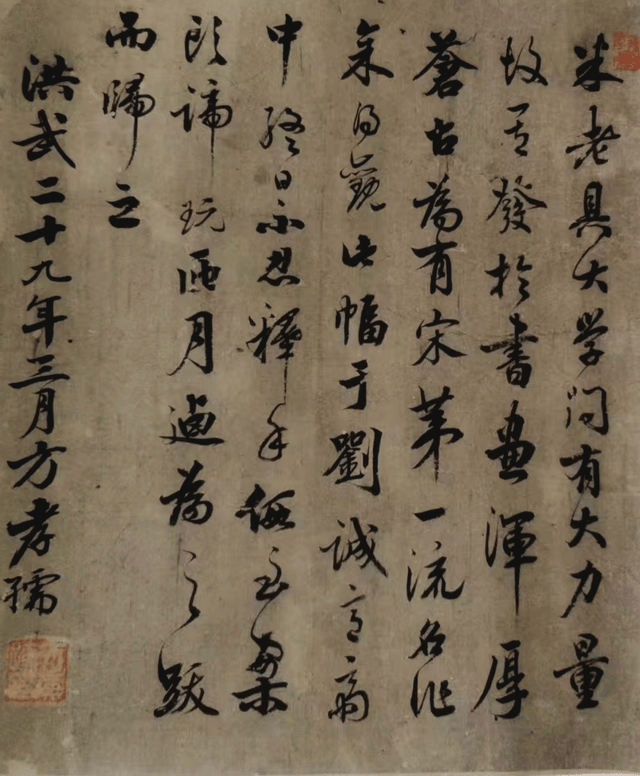 米老具大学问有大力量
故其發於書畫渾厚
蒼古為有宋第一流名作
余得觀此幅于劉誠意齋
中終日不忍釋手至案
頭諦玩匝月為之跋
而歸之
洪武二十九年三月方孝孺